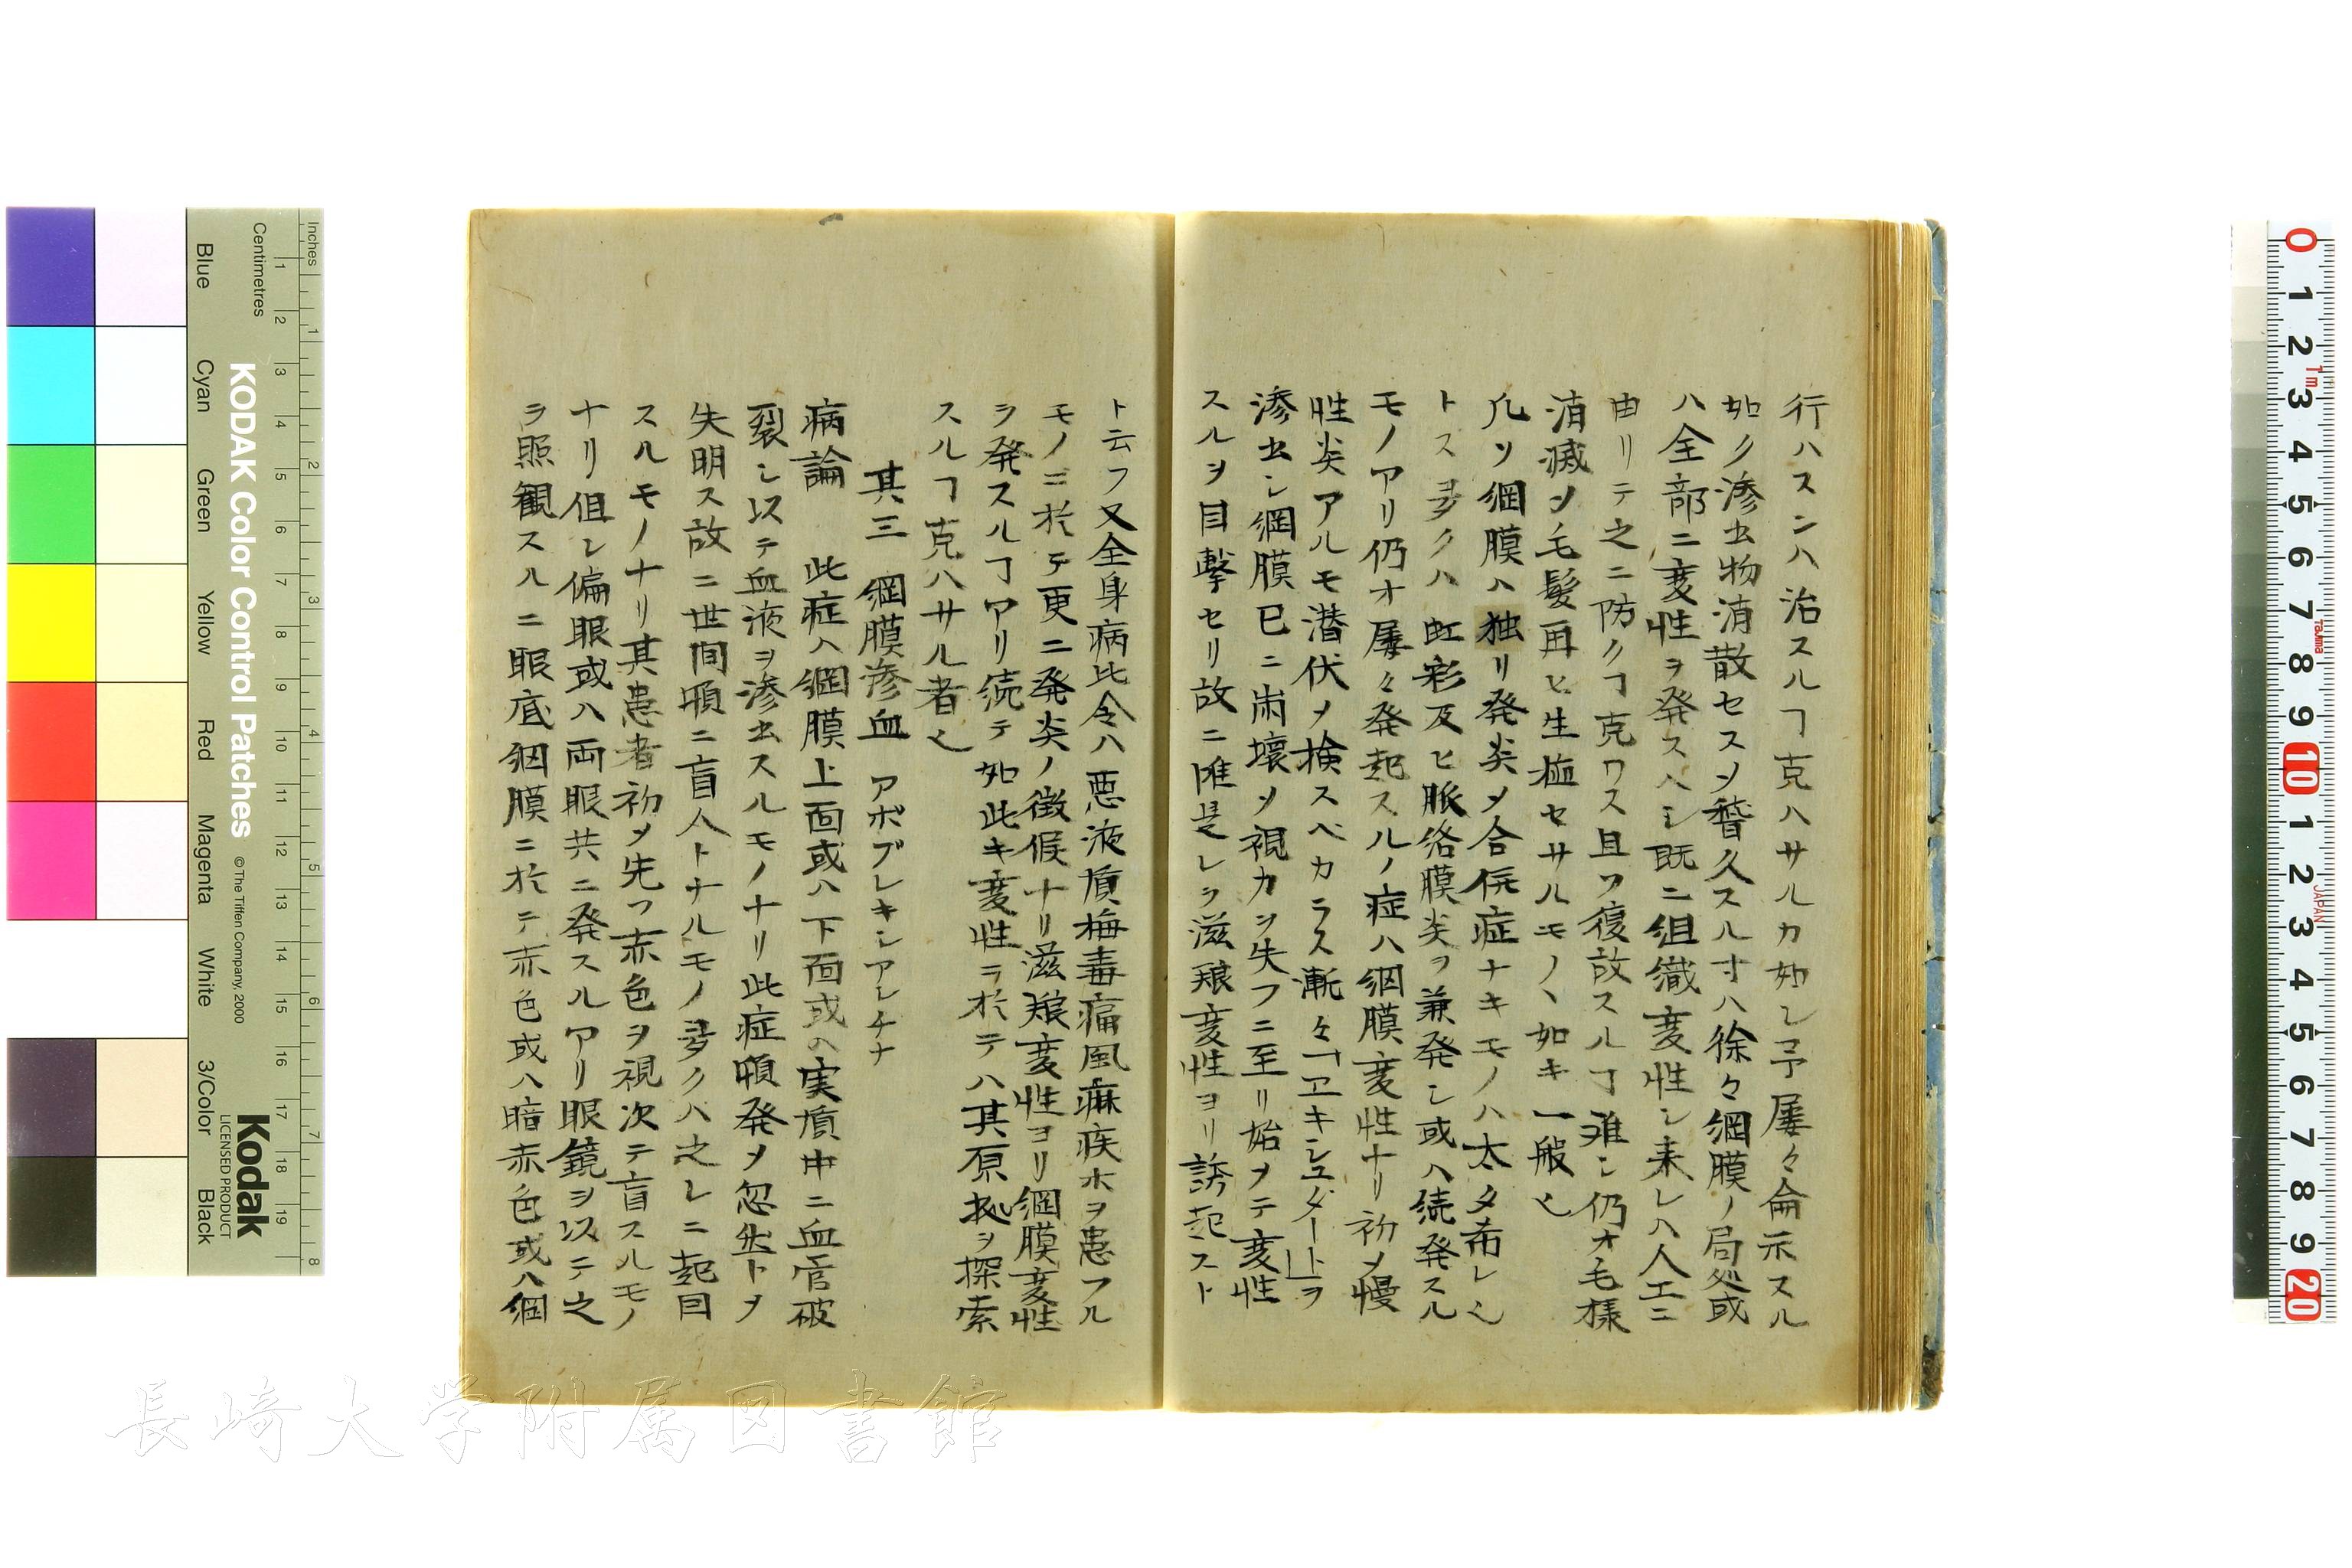 行ハスンハ治スルヿ克ハサルカ如シ予屡々侖示スル
如ク滲出物消散セスソ稽久スル寸ハ徐々網膜ノ局処或
ハ全部ニ変性ヲ発スヘシ既ニ組織変性シ来レハ人工ニ
由リテ之ニ防クヿ克ワス且ツ復故スルヿ难シ仍オ毛様
消滅ソ毛髪再ヒ生植セサルモノヽ如キ一般也
凡ソ網膜ハ独リ発炎ソ合併症ナキモノハ太タ希レ也
トス多クハ虹彩及ヒ脈絡膜炎ヲ兼発シ或ハ続発スル
モノアリ仍オ屡々発起スルノ症ハ網膜変性ナリ初メ慢
性炎アルモ潜伏ソ検スベカラス漸々「エキシュダート」ヲ
滲出シ網膜已ニ崩壊ソ視力ヲ失フニ至リ始メテ変性
スルヲ目撃セリ故ニ唯是レヲ滋殖変性ヨリ誘起スト
ト云フ又全身病比令ハ悪液質梅毒痛風麻疾ホヲ患フル
モノニ於テ更ニ発炎ノ徴候ナリ滋殖変性ヨリ網膜変性
ヲ発スルヿアリ続テ如此キ変性ヲ於テハ其原拠ヲ探索
スルヿ克ハサル者也
其三 網膜滲血 アポプレキシアレチナ
病論 此症ハ網膜上面或ハ下面或ハ実質中ニ血管破
裂シ以テ血液ヲ滲出スルモノナリ此症頓発ソ忽然トソ
失明ス故ニ世間頓ニ盲人トナルモノ多クハ之レニ起因
スルモノナリ其患者初メ先ツ赤色ヲ視次テ盲スルモノ
ナリ但シ偏眼或ハ両眼共ニ発スルアリ眼鏡ヲ以テ之
ヲ照観スルニ眼底網膜ニ於テ赤色或ハ暗赤色或ハ網
長崎大学附属図書館
KODAK Color Control Patches
© The Tiffen Company, 2000
Kodak
LICENSED PRODUCT
Inches
Centimetres
Blue
Cyan
Green
Yellow
Red
Magenta
White
3/Color
Black